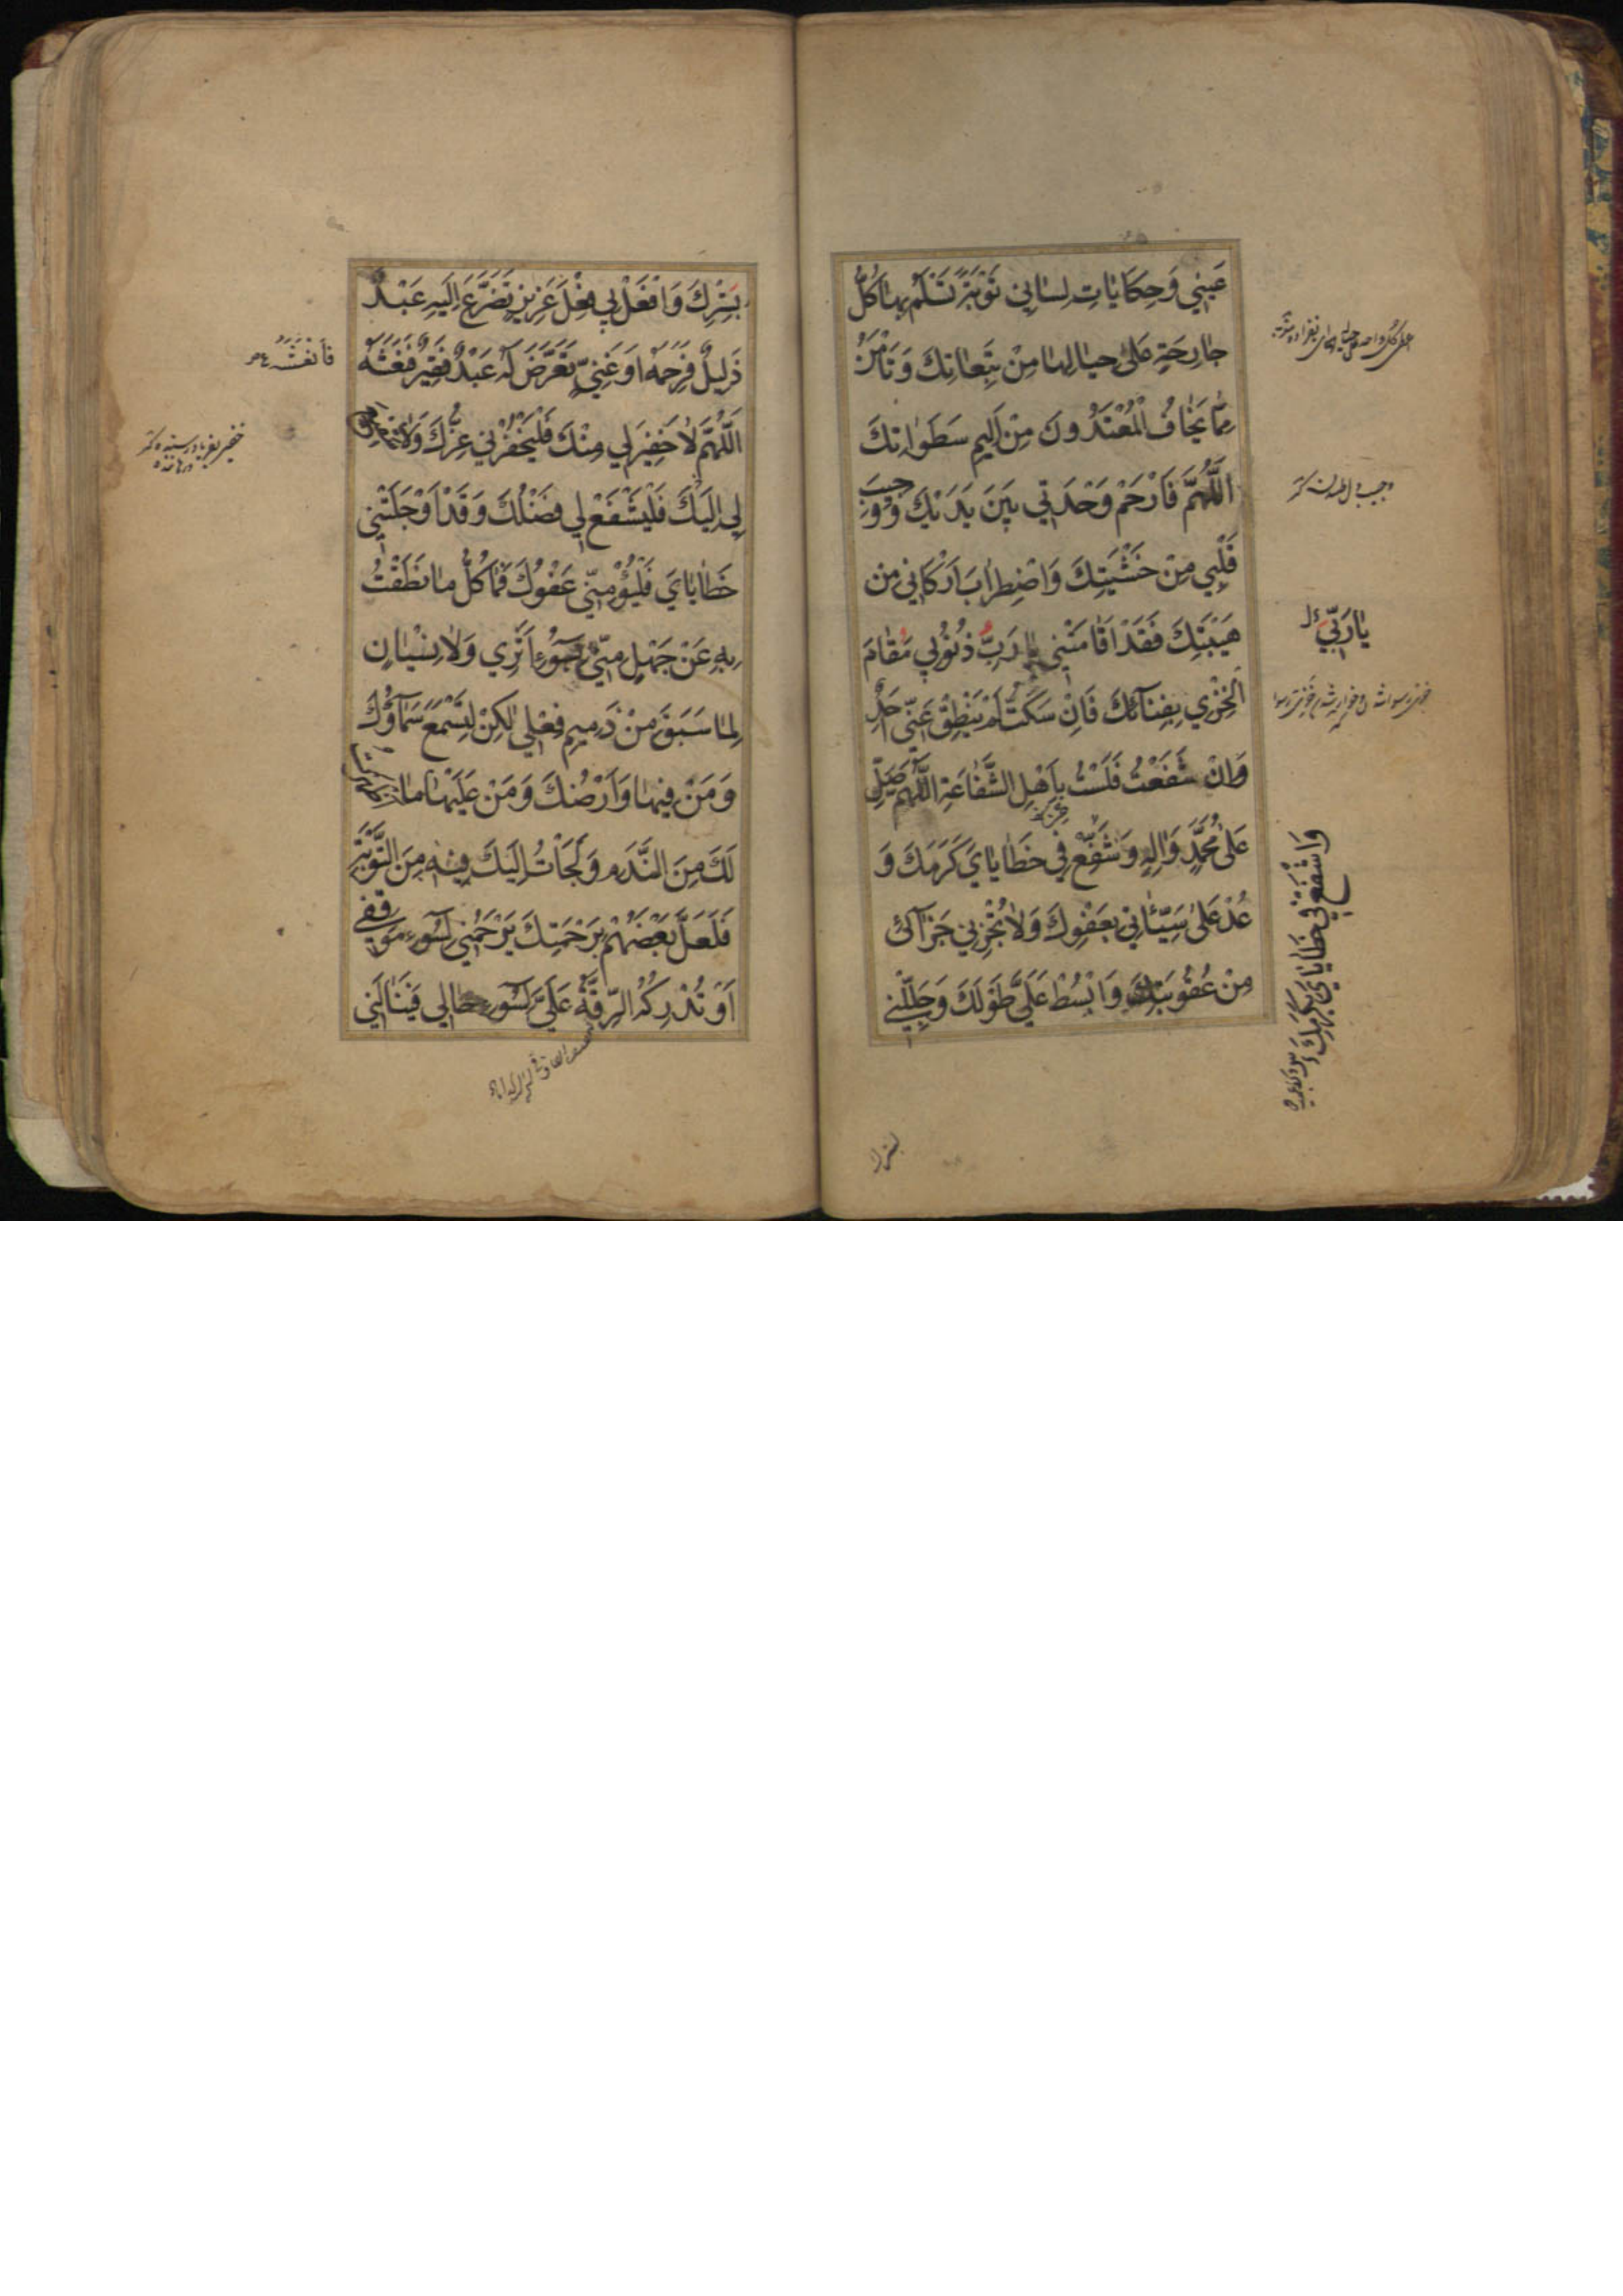 عَيْنِي وَحِكَايَاتِ لِسَانِي تَوْبَةً تَسْلَمُ بِهَا كُلُّ
جَارِحَةٍ عَلَىٰ حِيَالِهَا مِنْ تَبِعَاتِكَ وَتَأْمَنُ
مِمَّا يَخَافُ الْمُعْتَدُونَ مِنْ اَلِيمِ سَطَوَاتِكَ
اَللّٰهُمَّ فَارْحَمْ وَحْدَتِي بَيْنَ يَدَيْكَ وَوَجِيبَ
قَلْبِي مِنْ خَشْيَتِكَ وَاضْطِرَابَ اَرْكَانِي مِنْ
هَيْبَتِكَ فَقَدْ اَقَامَتْنِي يَا رَبِّ ذُنُوبِي مَقَامَ
الْخِزْيِ بِفِنَآئِكَ فَاِنْ سَكَتُّ لَمْ يَنْطِقْ عَنِّي اَحَدٌ
وَاِنْ شَفَعْتُ فَلَسْتُ بِاَهْلِ الشَّفَاعَةِ اَللّٰهُمَّ صَلِّ
عَلىٰ مُحَمَّدٍ وَاٰلِهِ وَشَفِّعْ فِي خَطَايَايَ كَرَمَكَ وَ
عُدْ عَلىٰ سَيِّئَاتِي بِعَفْوِكَ وَلَا تَجْزِنِي جَزَآئِي
مِنْ عُقُوبَتِكَ وَابْسُطْ عَلَيَّ طَوْلَكَ وَجَلِّلْنِي
يَا رَبِّي
وَاشْفَعْ فِي خَطَايَايَ بِكَرَمِكَ
بسترك
بِسِتْرِكَ وَافْعَلْ بِي فِعْلَ عَزِيزٍ تَضَرَّعَ اِلَيْهِ عَبْدٌ
ذَلِيلٌ فَرَحِمَهُ اَوْ غَنِيٍّ تَعَرَّضَ لَهُ عَبْدٌ فَقِيرٌ فَنَعَشَهُ
اَللّٰهُمَّ لَا خَفِيرَ لِي مِنْكَ فَلْيَخْفُرْنِي عِزُّكَ وَلَا شَفِيعَ
لِي اِلَيْكَ فَلْيَشْفَعْ لِي فَضْلُكَ وَقَدْ اَوْجَلَتْنِي
خَطَايَايَ فَلْيُؤْمِنِّي عَفْوُكَ فَمَا كُلُّ مَا نَطَقْتُ
بِهِ عَنْ جَهْلٍ مِنِّي بِسُوۤءِ اَثَرِي وَلَا نِسْيَانٍ
لِمَا سَبَقَ مِنْ ذَمِيمِ فِعْلِي لٰكِنْ لِتَسْمَعَ سَمَآؤُكَ
وَمَنْ فِيهَا وَاَرْضُكَ وَمَنْ عَلَيْهَا مَا
لَكَ مِنَ النَّدَمِ وَلَجَأْتُ اِلَيْكَ فِيهِ مِنَ التَّوْبَةِ
فَلَعَلَّ بَعْضَهُمْ بِرَحْمَتِكَ يَرْحَمُنِي لِسُوۤءِ مَوْقِفِي
اَوْ تُدْرِكُهُ الرِّقَّةُ عَلَيَّ لِسُوۤءِ حَالِي فَيَنَالَنِي